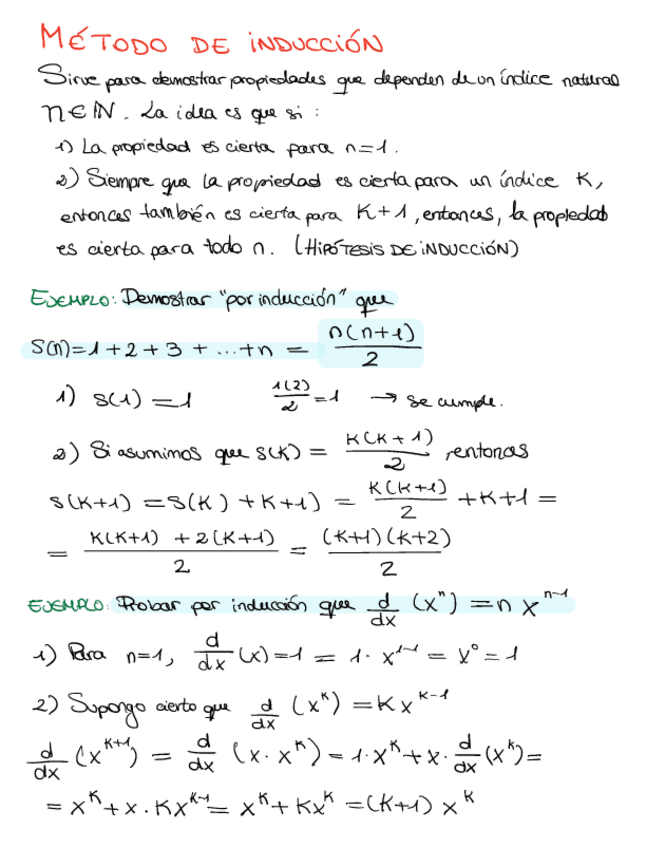 MÉTODO DE INDUCCIÓN
Sirve para demostrar propiedades que dependen de un índice natural
n ∈ ℕ. La idea es que si :
1) La propiedad es cierta para n=1.
2) Siempre que la propiedad es cierta para un índice K,
entonces también es cierta para K+1, entonces, la propiedad
es cierta para todo n. (HIPÓTESIS DE INDUCCIÓN)
EJEMPLO: Demostrar "por inducción" que
S(n)=1+2+3+...+n = n(n+1)/2
1) S(1)=1 1(2)/2=1 → se cumple.
2) Si asumimos que S(K) = K(K+1)/2, entonces
S(K+1) = S(K)+K+1) = K(K+1)/2 +K+1 =
= K(K+1) + 2(K+1)/2 = (K+1)(K+2)/2
EJEMPLO: Probar por inducción que d/dx (x^n) = n x^(n-1)
1) Para n=1, d/dx (x)=1 = 1· x^(1-1) = x^0 = 1
2) Supongo cierto que d/dx (x^K) = K x^(K-1)
d/dx (x^(K+1)) = d/dx (x· x^K) = 1· x^K + x· d/dx (x^K) =
= x^K + x · K x^(K-1) = x^K + K x^K = (K+1) x^K